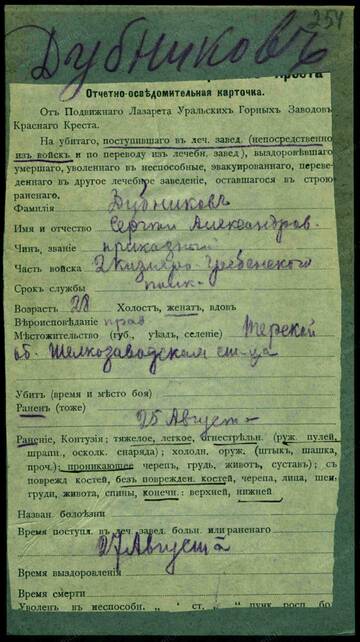 254
Дубниковъ
Креста
Отчетно-освѣдомительная карточка.
Отъ Подвижнаго Лазарета Уральскихъ Горныхъ Заводовъ
Краснаго Креста.
На убитаго, поступившаго въ леч. завед. (непосредственно
изъ войскъ и по переводу изъ лечебн. завед.), выздоровѣвшаго
умершаго, уволеннаго въ неспособные, эвакуированнаго, переве-
деннаго въ другое лечебное заведеніе, оставшагося въ строю
раненаго.
Фамилія Дубниковъ
Имя и отчество Сергѣй Александров.
Чинъ, званіе приказной
Часть войска 2 Кизляро-Гребенского
Срокъ службы полк.
Возрастъ 28 Холостъ, женатъ, вдовъ
Вѣроисповѣданіе прав
Мѣстожительство (губ., уѣздъ, селеніе) Терской
об. Шелкозаводская ст-ца
Убитъ (время и мѣсто боя)
Раненъ (тоже)
25 Август
Раненіе, Контузія: тяжелое, легкое, огнестрѣльн. (руж. пулей,
шрапн., осколк. снаряда); холодн. оруж. (штыкъ, шашка,
проч.); проникающее черепъ, грудь, животъ, суставъ); съ
поврежд костей, безъ поврежден. костей, черепа, лица, шеи,
груди, живота, спины, конечн.: верхней, нижней.
Назван. болѣзни
Время поступл. въ леч. завед. больн. или раненаго
27 Августа
Время выздоровленія
Время смерти
Уволенъ въ неспособн.